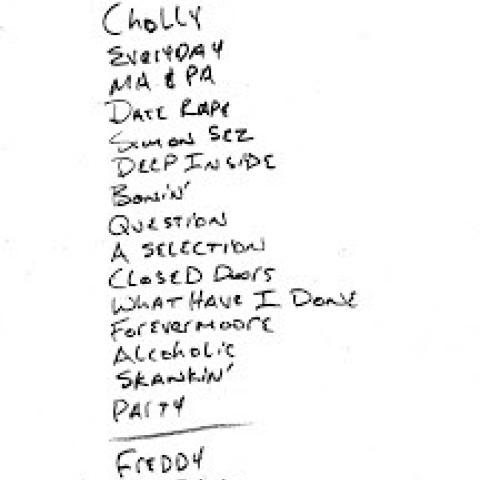 Cholly
EveryDAY
MA & PA
DATE RAPE
SIMON SEZ
DEEP INSIDE
Bonin'
QUESTION
A SELECTION
CLOSED Doors
WHAT HAVE I DONE
ForEverMoore
Alcoholic
SKANKIN'
PARTY
FREDDY